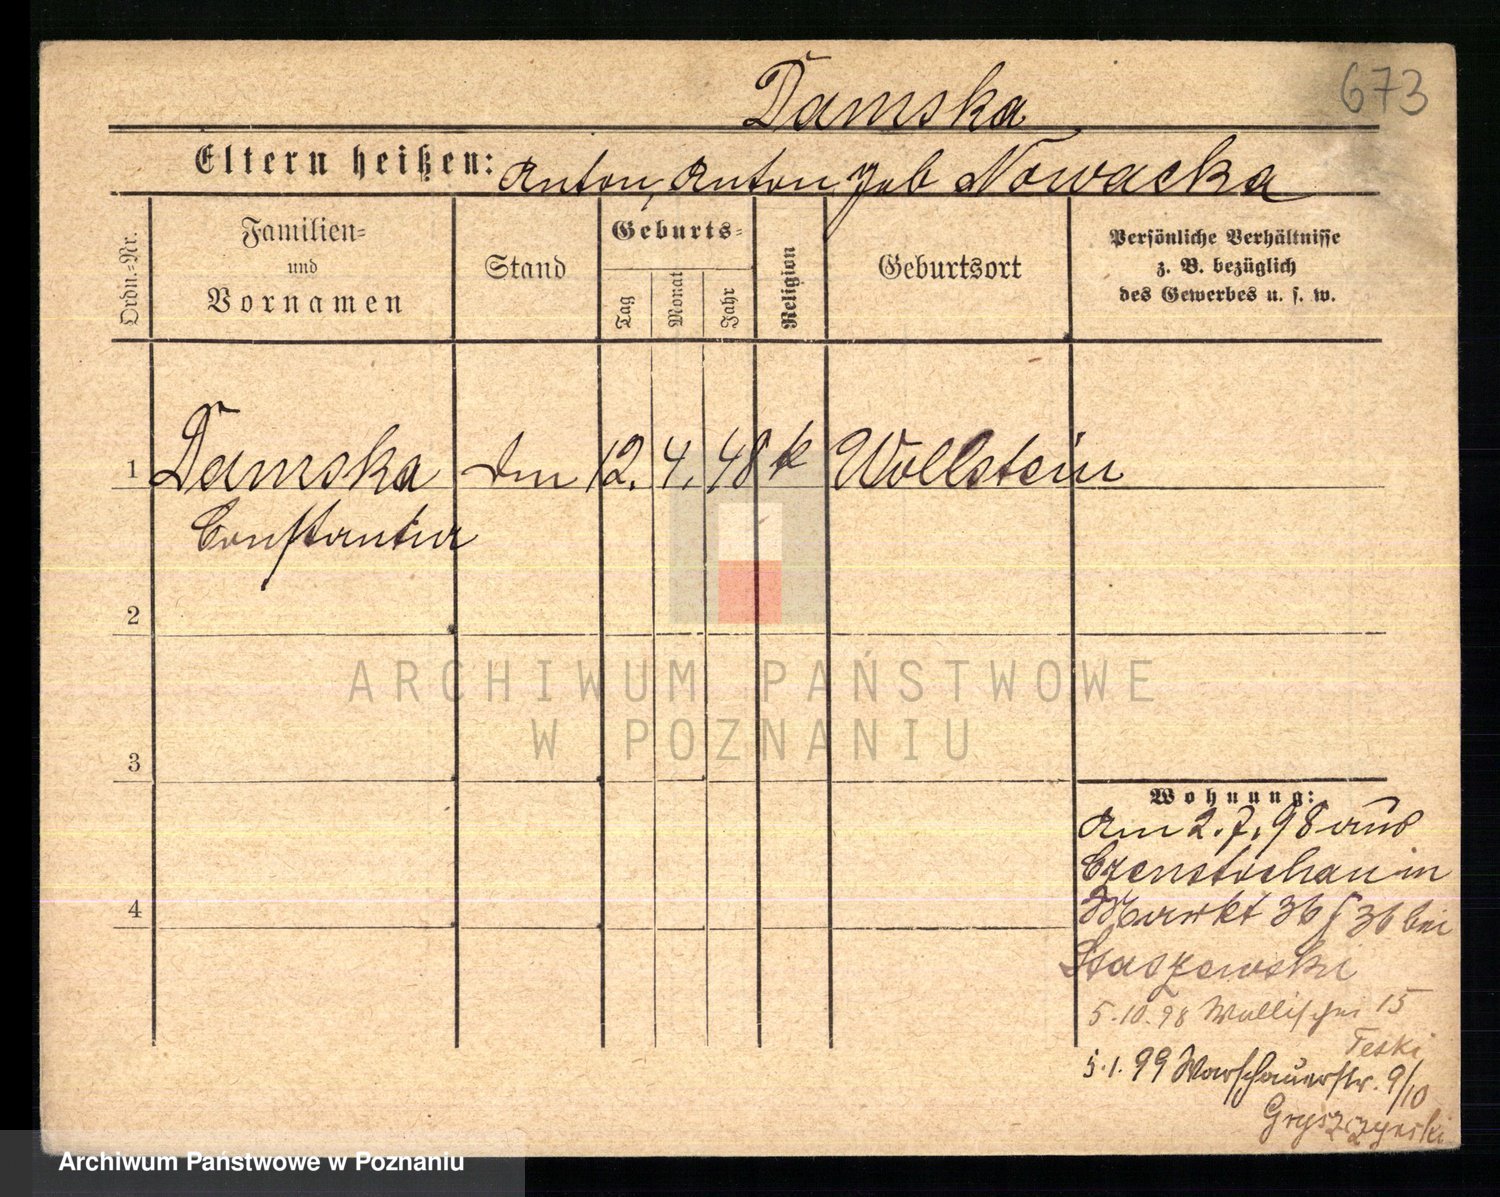 673
Damska
Eltern heißen: Anton, Anton geb Nowacka
Ordn.-Nr.
Familien-
und
Vornamen
Stand
Geburts-
Tag
Monat
Jahr
Religion
Geburtsort
Persönliche Verhältnisse
z. B. bezüglich
des Gewerbes u. s. w.
1 Damska 12. 4. 48 k Wollstein
2
ARCHIWUM PAŃSTWOWE
W POZNANIU
3
Wohnung:
Am 2.7.98 aus
Czenstochau in
4
Markt 36 bei
Staszewski
5.10.98 Wallischei 15
Teski
5.1.99 Warschauerstr. 9/10
Gryszczynski
Archiwum Państwowe w Poznaniu